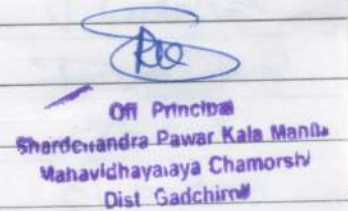 Offi Principal
Shardchandra Pawar Kala Mahila
Mahavidhayalaya Chamorshi
Dist Gadchiroli